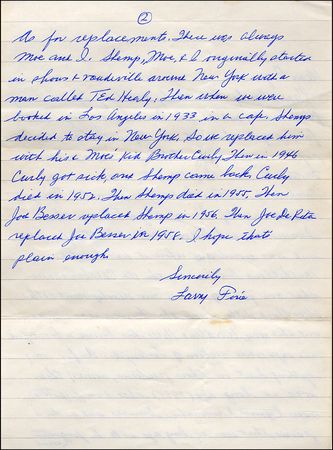 (2)
As for replacements. There was always
Moe and I. Shemp, Moe, & I originally started
in shows & vaudeville around New York with a
man called Ted Healy. Then when we were
booked in Los Angeles in 1933 in a cafe. Shemp
decided to stay in New York. So we replaced him
with his & Moes' Kid Brother Curly. Then in 1946
Curly got sick, and Shemp came back. Curly
died in 1952. Then Shemp died in 1955. Then
Joe Besser replaced Shemp in 1956. Then Joe de Rita
replaced Joe Besser in 1958. I hope that's
plain enough.
Sincerily
Larry Fine